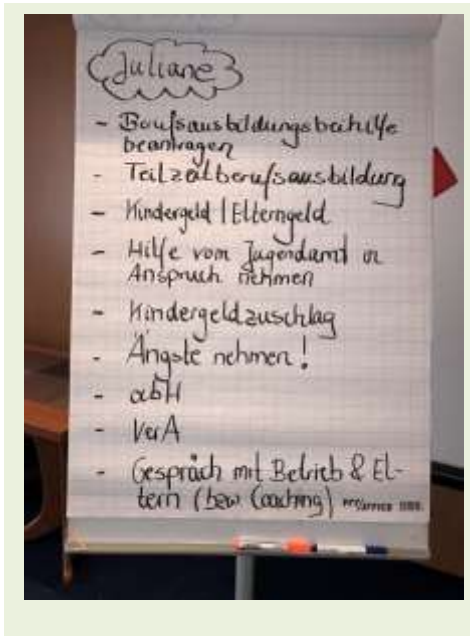 Juliane
- Berufsausbildungsbeihilfe
beantragen
- Teilzeitberufsausbildung
- Kindergeld | Elterngeld
- Hilfe vom Jugendamt in
Anspruch nehmen
- Kindergeldzuschlag
- Ängste nehmen!
- abH
- VerA
- Gespräch mit Betrieb & El-
tern (bzw Coaching)